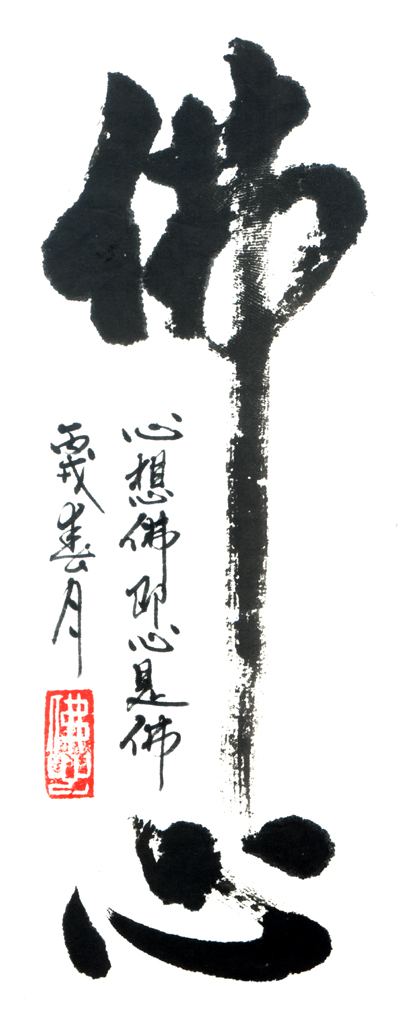 佛心
心想佛即心是佛
丙戌春月